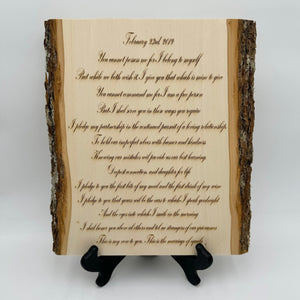 February 22nd, 2019
You cannot possess me for I belong to myself
But while we both wish it, I give you that which is mine to give
You cannot command me for I am a free person
But I shall serve you in those ways you require
I pledge my partnership in the continued pursuit of a loving relationship
To hold our imperfect selves with humor and kindness
Knowing our mistakes will provide our best learning
Deepest connection, and laughter for life
I pledge to you the first bite of my meat and the first drink of my wine
I pledge to you that yours will be the ear to which I speak goodnight
And the eyes into which I smile in the morning
I shall honor you above all others and let no strangers of our grievances
This is my vow to you. This is the marriage of equals.